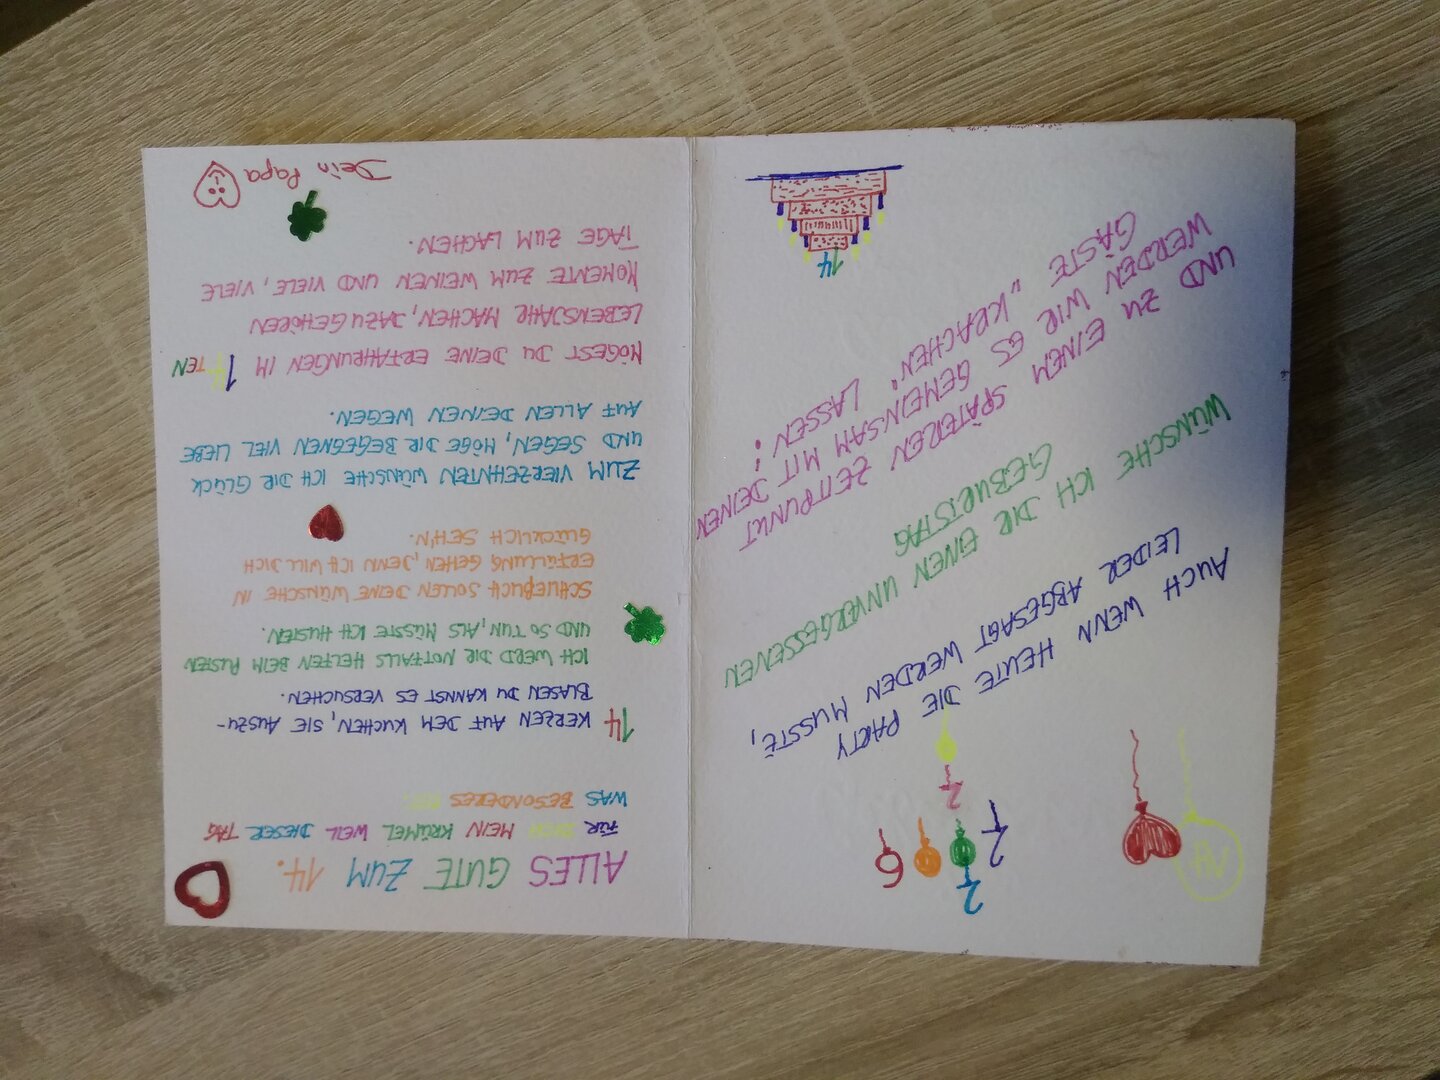 AUCH WENN HEUTE DIE PARTY
LEIDER ABGESAGT WERDEN MUSSTE,
WÜNSCHE ICH DIR EINEN UNVERGESSENEN
GEBURTSTAG
UND ZU EINEM SPÄTEREN ZEITPUNKT
WERDEN WIR ES GEMEINSAM MIT DEINEN
GÄSTE „KRACHEN" LASSEN!
14
ALLES GUTE ZUM 14.
FÜR DICH MEIN KRÜMEL WEIL DIESER TAG
WAS BESONDERES IST.
14 KERZEN AUF DEM KUCHEN, SIE AUSZU-
BLASEN DU KANNST ES VERSUCHEN.
ICH WERD DIR NOTFALLS HELFEN BEIM PUSTEN
UND SO TUN, ALS MÜSSTE ICH HUSTEN.
SCHLIEßLICH SOLLEN DEINE WÜNSCHE IN
ERFÜLLUNG GEHEN, DENN ICH WILL DICH
GLÜCKLICH SEH'N.
ZUM VIERZEHNTEN WÜNSCHE ICH DIR GLÜCK
UND SEGEN, MÖGE DIR BEGEGNEN VIEL LIEBE
AUF ALLEN DEINEN WEGEN.
MÖGEST DU DEINE ERFAHRUNGEN IM 14TEN
LEBENSJAHR MACHEN, DAZU GEHÖREN
MOMENTE ZUM WEINEN UND VIELE, VIELE
TAGE ZUM LACHEN.
Dein Papa